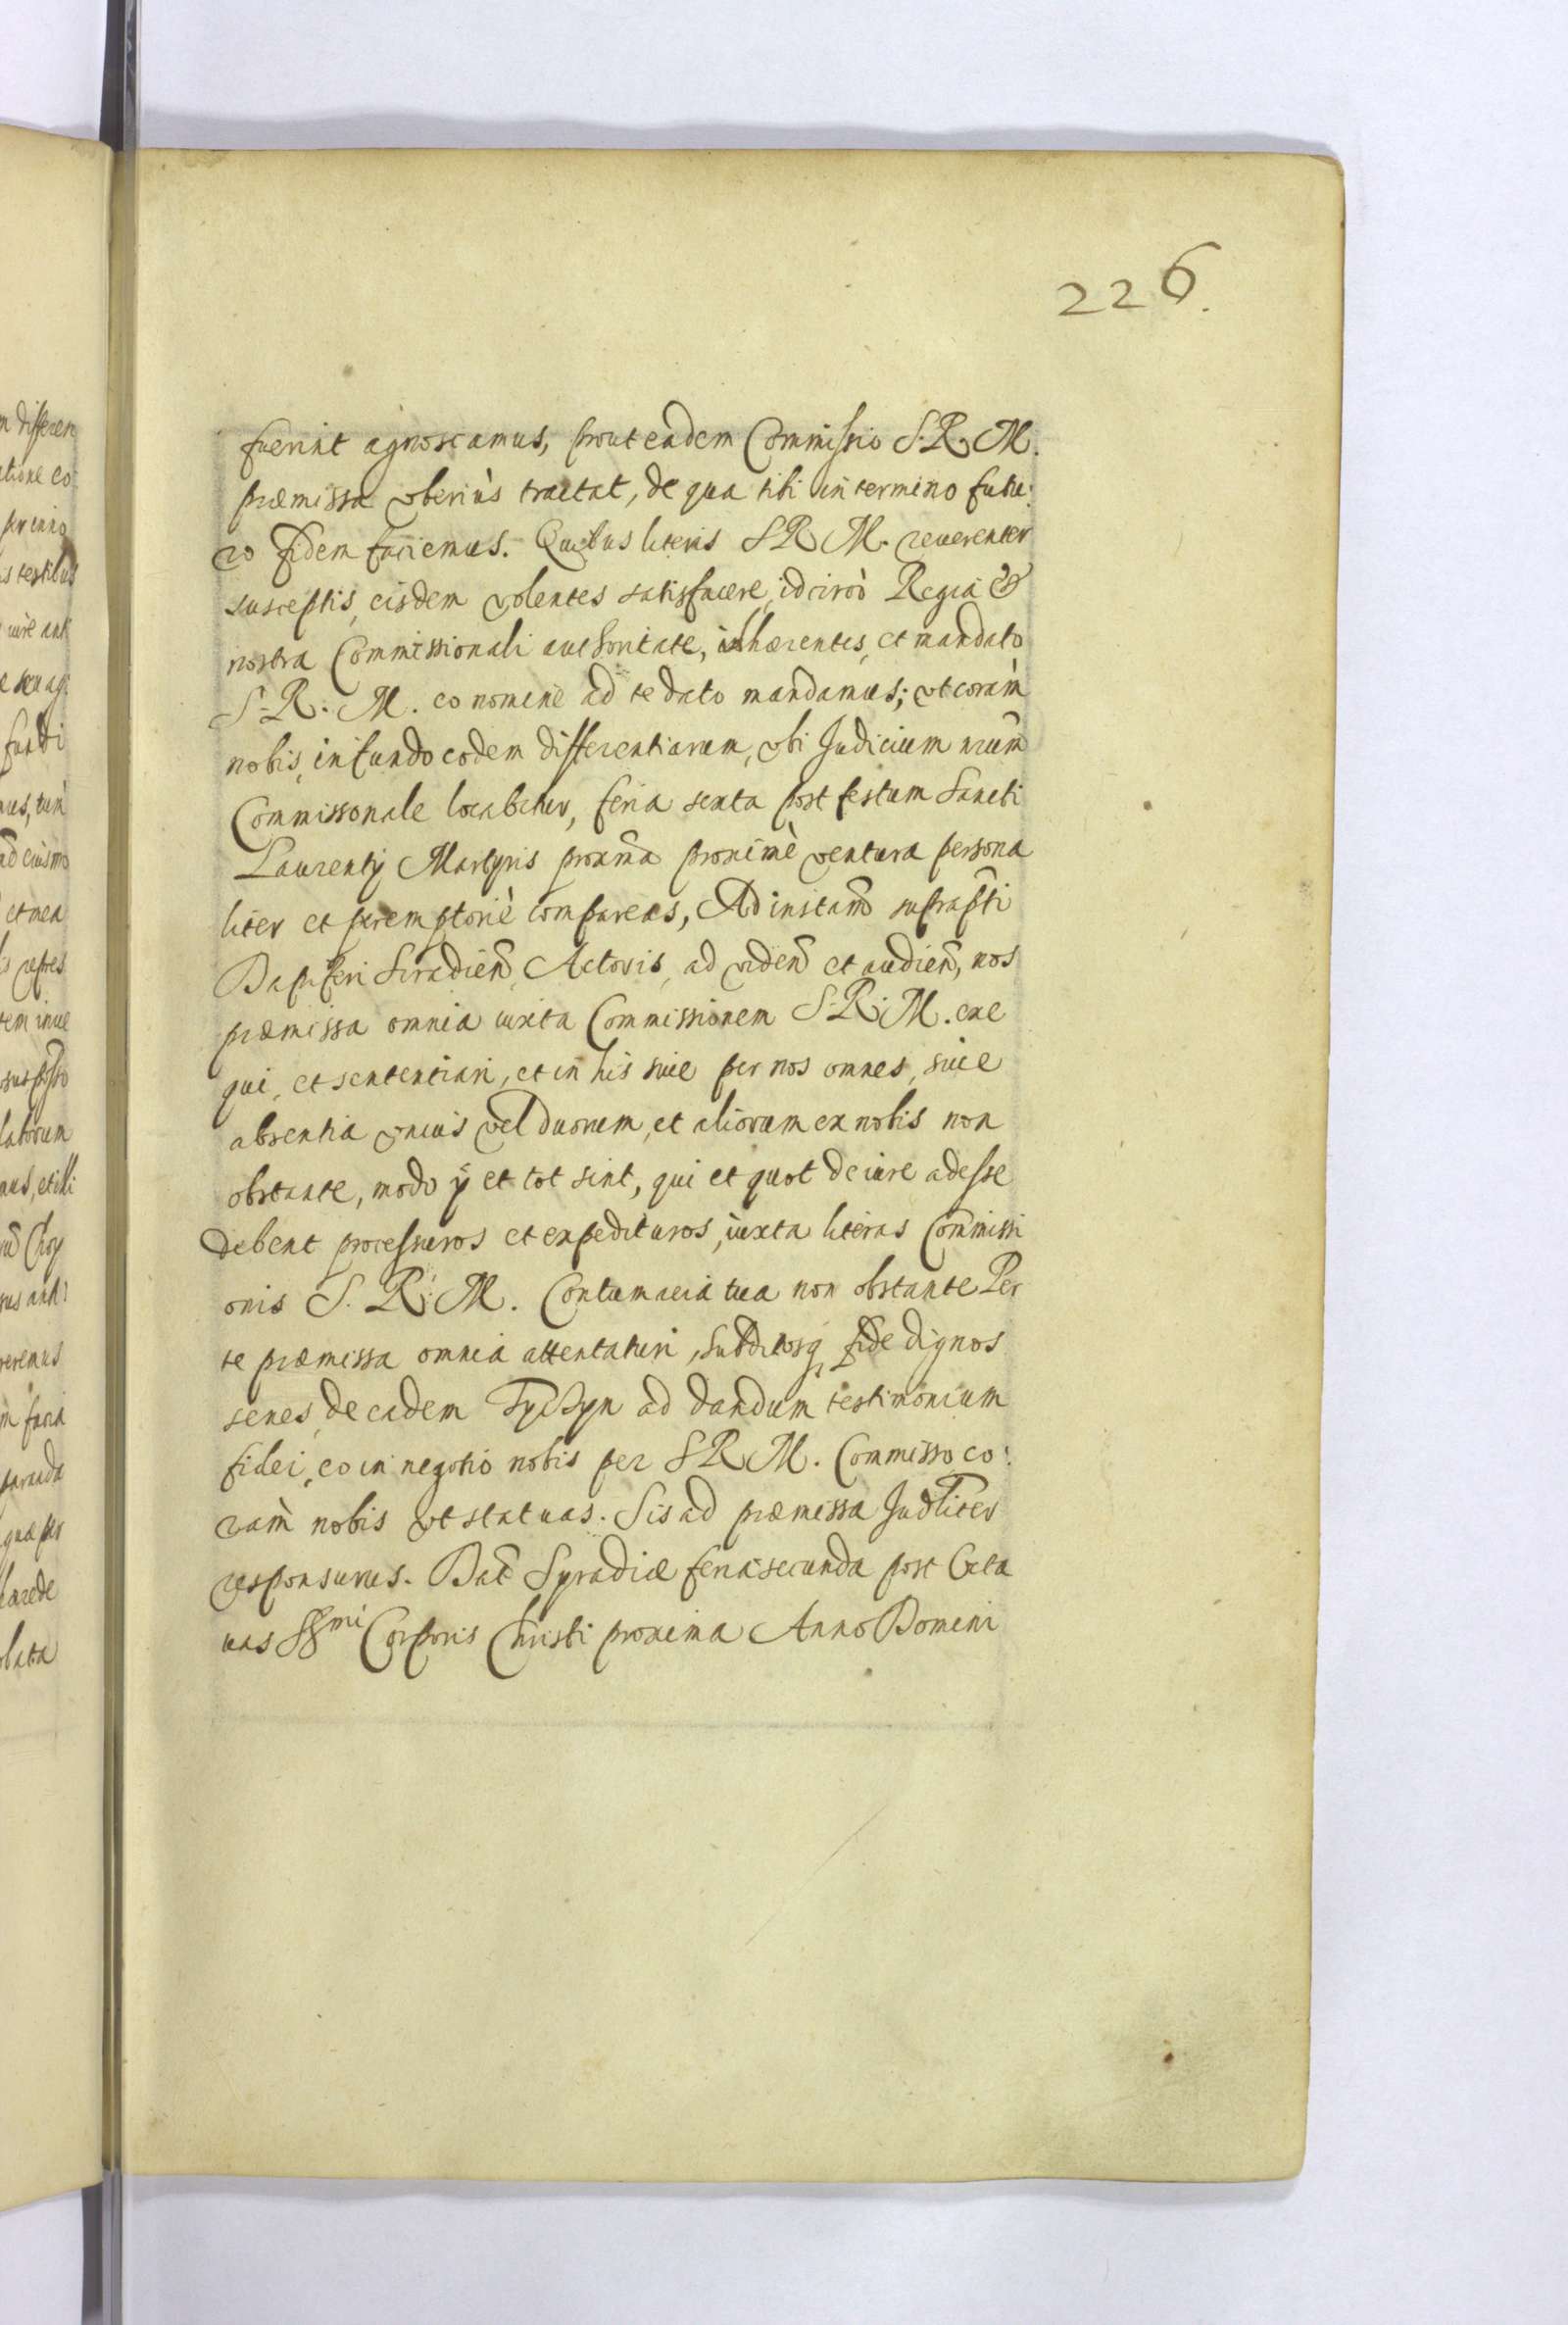 226.
fuerint agnoscamus, prout eadem Commissio S. R. M.
præmissa vberiùs tractat, de qua tibi in termino futu:
ro fidem faciemus. Quibus literis S R M. reuerenter
susceptis, eisdem volentes satisfacere, idcircò Regia &
nostra Commissionali authoritate, inhærentes, et mandato
S. R. M. eo nomine ad te dato mandamus; vt coràm
nobis, in fundo eodem differentiarum, vbi Judicium nrum̃
Commissonale locabitur, feria sexta post festum Sancti
Laurentÿ Martyris proxma proximè ventura persona
liter et peremptoriè compareas, Ad instañ suprapti
Dapiferi Siradieñ, Actoris, ad videñ et audieñ, nos
præmissa omnia iuxta Commissionem S. R. M. exe
qui, et sententiari, et in his siue per nos omnes, siue
absentia vnius vel duorum, et aliorum ex nobis non
obstante, modo ÿ et tot sint, qui et quot de iure adesse
debent processuros et expedituros, iuxta literas Commissi
onis S. R. M. Contumacia tua non obstante Per
te præmissa omnia attentaturi, subditosq fide dignos
senes, de eadem ad dandum testimonium
fidei, eo in negotio nobis per S R M. Commisso co:
ràm nobis vt statuas. Sis ad præmissa Judliter
responsurus. Dat̃ Syradiæ feria secunda post Octa
uas SSmi Corporis Christi proxima Anno Domini
n differen
atione eo
s testibus
iure ant
fundi
mus, tum
et mea
latorum
sus ant:
m facia
lata